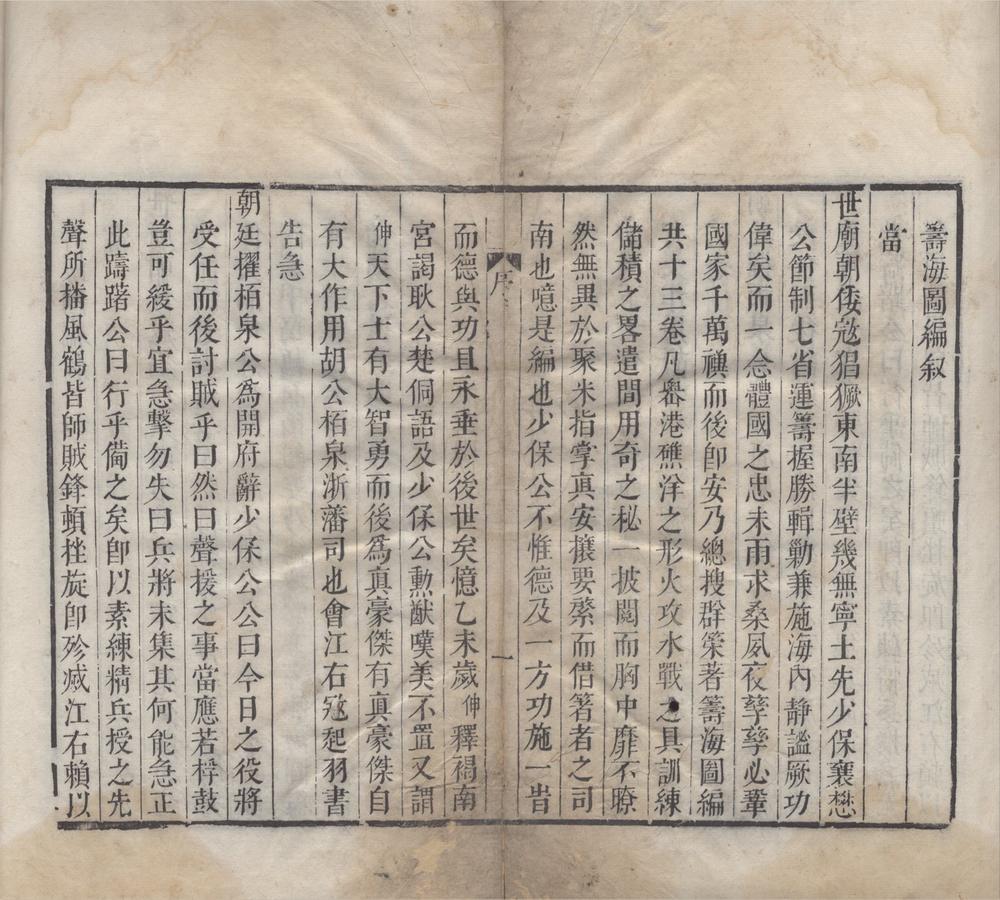 籌海圖編叙
當
世廟朝倭寇猖獗東南半壁幾無寧土先少保襄懋
公節制七省運籌握勝輯勦兼施海內静謐厥功
偉矣而一念體國之忠未雨求桑夙夜孳孳必鞏
國家千萬禩而後卽安乃總搜群䇿著籌海圖編
共十三卷凡嶴港礁洋之形火攻水戰之具訓練
儲積之畧遣間用奇之秘一披閱而胸中靡不瞭
然無異於聚米指掌眞安攘要䇿而借箸者之司
南也噫是編也少保公不惟德及一方功施一旹
序
一
而德與功且永垂於後世矣憶乙未歲伸釋褐南
宮謁耿公楚侗語及少保公勲猷嘆美不置又謂
伸天下士有大智勇而後爲眞豪傑有眞豪傑自
有大作用胡公栢泉浙藩司也會江右宼起羽書
告急
朝廷擢栢泉公爲開府辭少保公公曰今日之役將
受任而後討賊乎曰然曰聲援之事當應若桴鼓
豈可緩乎宜急擊勿失曰兵將未集其何能急正
此躊躇公曰行乎備之矣卽以素練精兵授之先
聲所播風鶴皆師賊鋒頓挫旋卽殄滅江右賴以